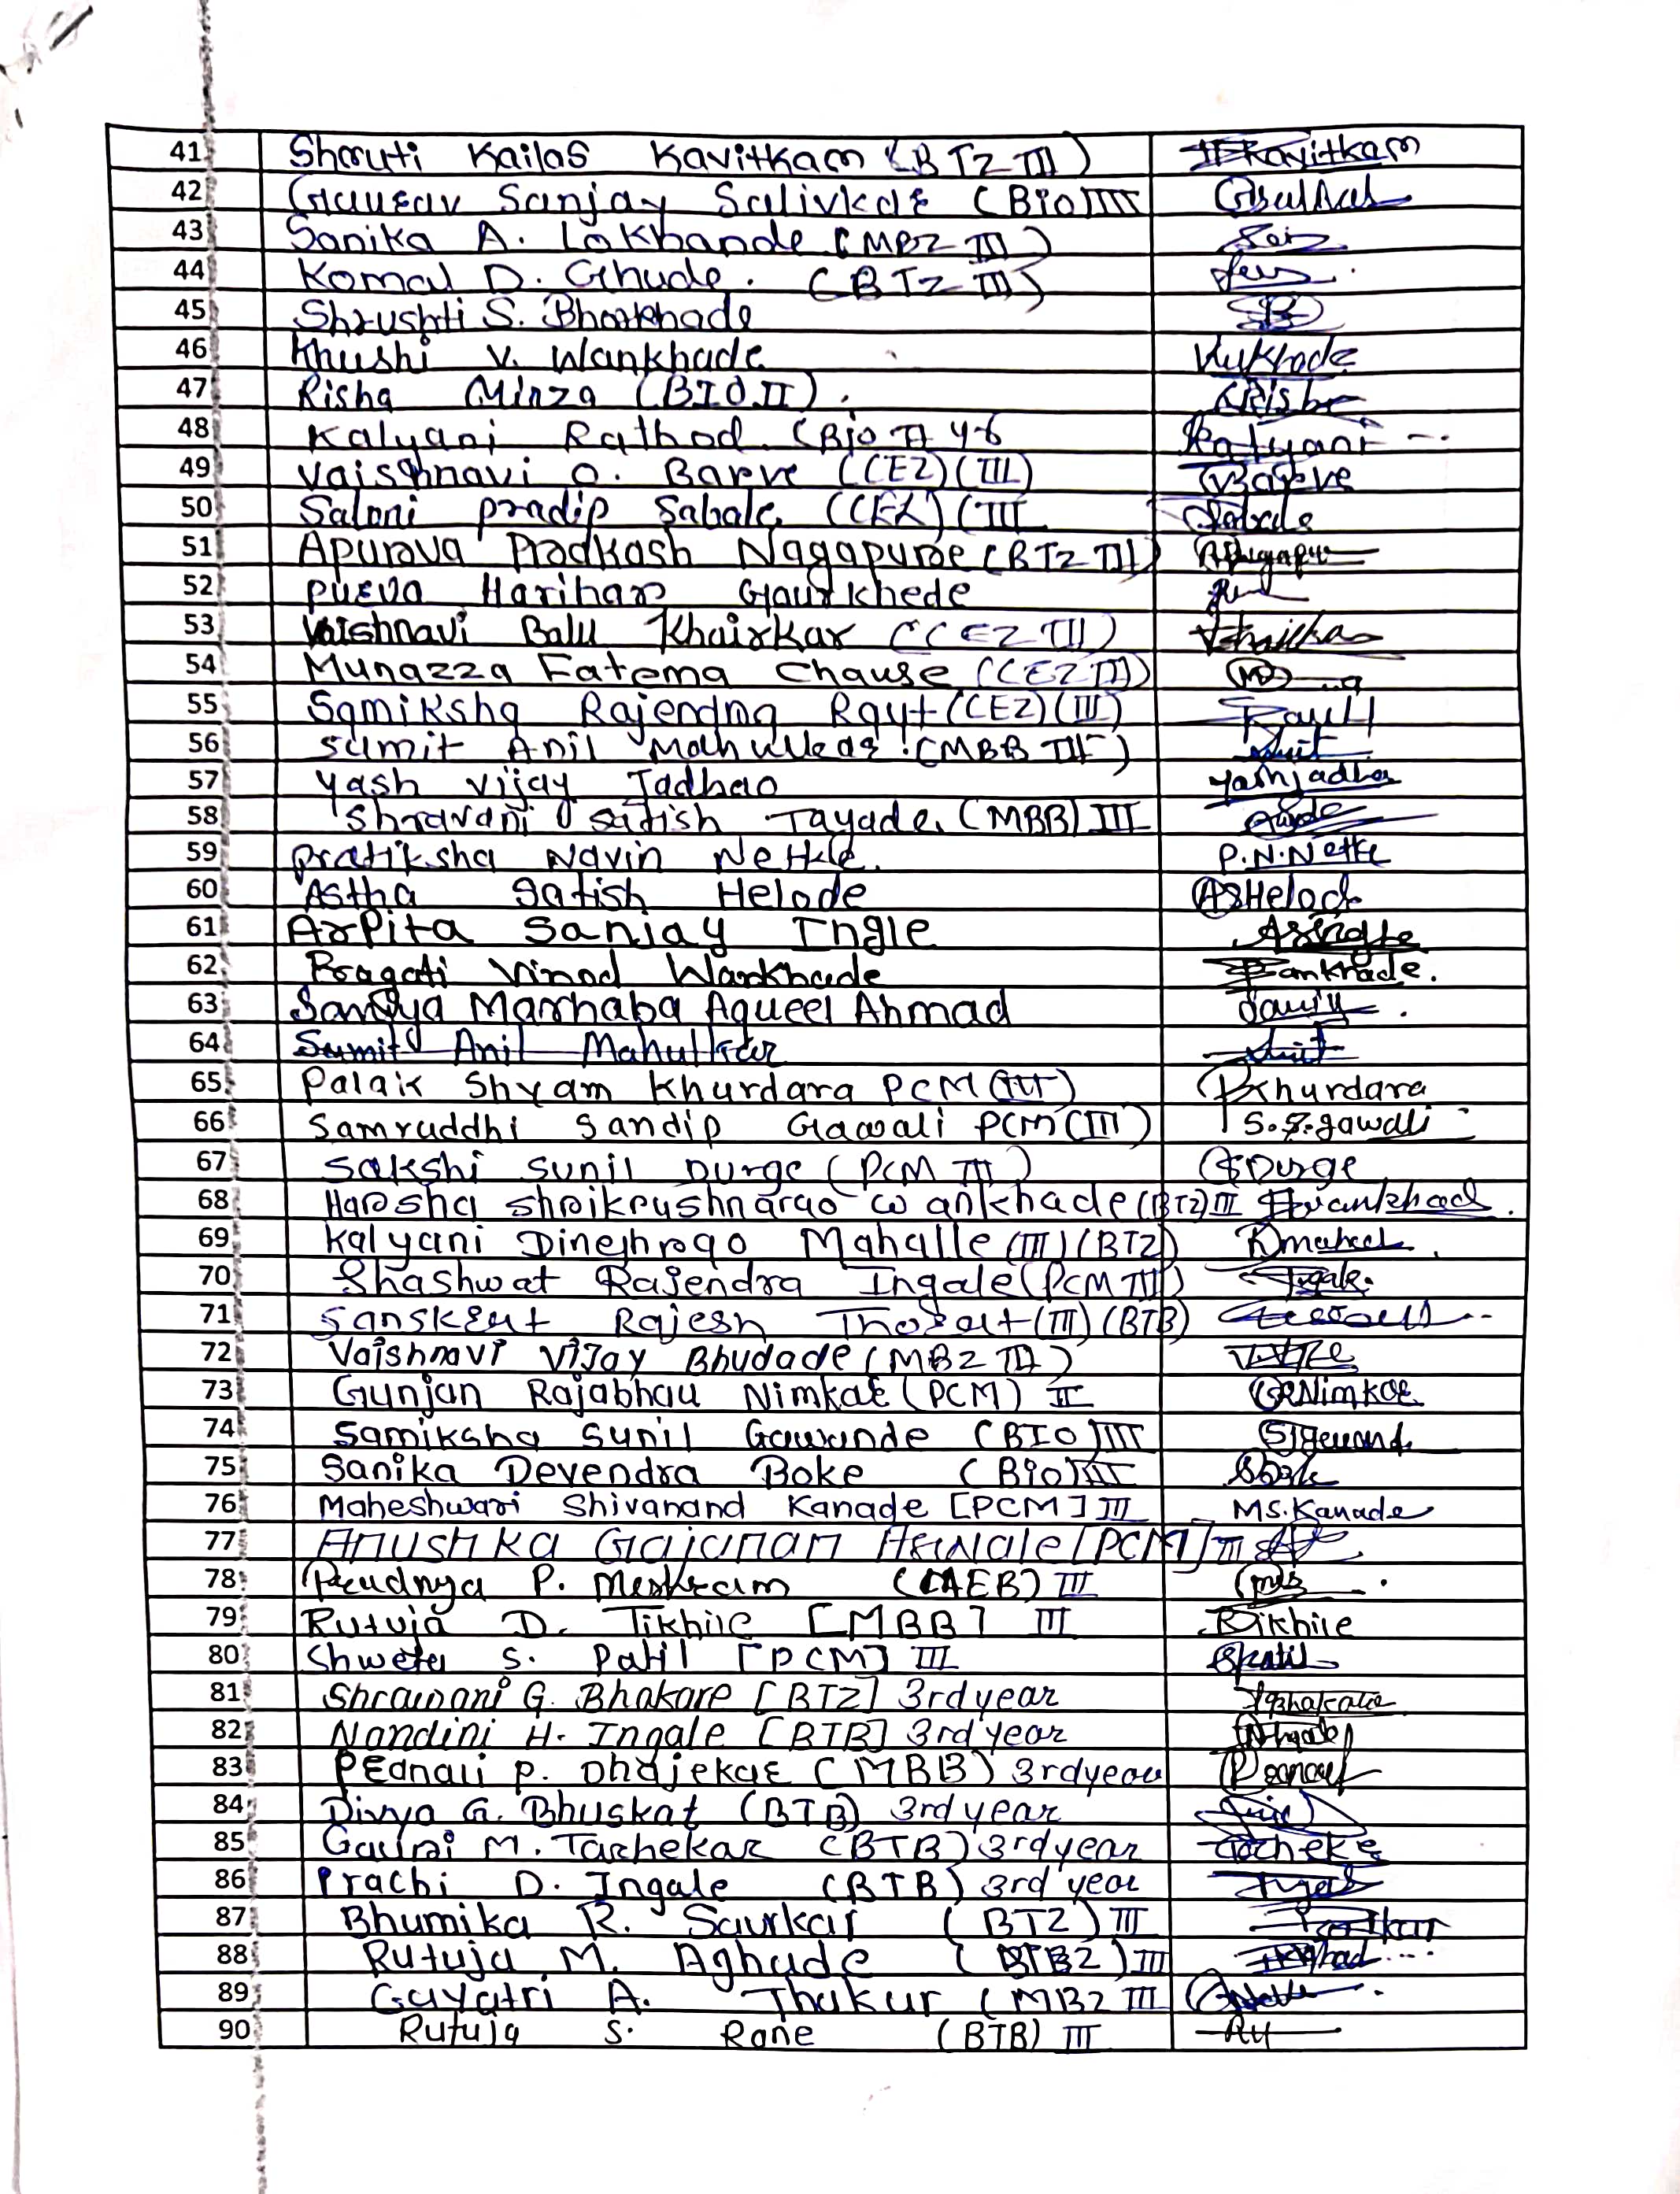 41 Shruti Kailas Kavitkar (BTZ III) Kavitkar
42 Gaurav Sanjay Salivkar (Bio) III
43 Sanika A. Lokhande (MBZ III)
44 Komal D. Ghude. (BTZ III)
45 Shrushti S. Bharkhade
46 Khushi V. Wankhade
47 Risha Mirza (BIO II).
48 Kalyani Rathod (Bio Kalyani
49 Vaishnavi O. Barve (CEZ) (III) Barve
50 Saloni pradip Sabale (CEZ) (III Sabale
51 Apurava Pradkash Nagapure (BTZ III)
52 purva Harihar Gourkhede
53 Vaishnavi Balu Khairkar (CEZ III)
54 Munazza Fatema Chause (CEZ III)
55 Samiksha Rajendra Raut (CEZ) (III) Raut
56 Sumit Anil Mahulkar (MBB III)
57 Yash Vijay Jadhao Yashjadhao
58 Shravani Satish Tayade (MBB) III
59 Pratiksha Navin Nettle. P.N.Nettle
60 Astha Satish Helode ASHelode
61 Arpita Sanjay Ingle ASIngle
62 Pragati Vinod Wankhade
63 Saniya Marhaba Aqueel Ahmad
64 Sumit Anil Mahulkar
65 Palak Shyam Khurdara PCM (III) PKhurdara
66 Samruddhi Sandip Gawali PCM (III) S.S.gawali
67 Sakshi Sunil Durge (PCM III) SDurge
68 Harsha Shrikrushnarao Wankhade (BTZ) III Hwankhade
69 Kalyani Dineshrao Mahalle (III) (BTZ)
70 Shashwat Rajendra Ingale (PCM III) Ingale
71 Sanskrut Rajesh Thorat (III) (BTB)
72 Vaishnavi Vijay Bhudade (MBZ III)
73 Gunjan Rajabhau Nimkar (PCM) III GRNimkar
74 Samiksha Sunil Gawande (BIO) III
75 Sanika Devendra Boke (Bio) III SBoke
76 Maheshwari Shivanand Kanade [PCM] III MS.Kanade
77 Anushka Gajanan Aswale [PCM] III
78 Prudnya P. Meshram (AEB) III
79 Rutuja D. Tikhile [MBB] III RTikhile
80 Shweta S. Patil [PCM] III SPatil
81 Shrawani G. Bhakare [BTZ] 3rd year Bhakare
82 Nandini H. Ingale [BTB] 3rd year
83 Pranali P. Dhajekar (MBB) 3rd year
84 Divya G. Bhuskat (BTB) 3rd year
85 Gauri M. Tarhekar (BTB) 3rd year
86 Prachi D. Ingale (BTB) 3rd year
87 Bhumika R. Saurkar (BTZ) III
88 Rutuja M. Aghade (BTBZ) III
89 Gayatri A. Thakur (MBZ III
90 Rutuja S. Rane (BTB) III